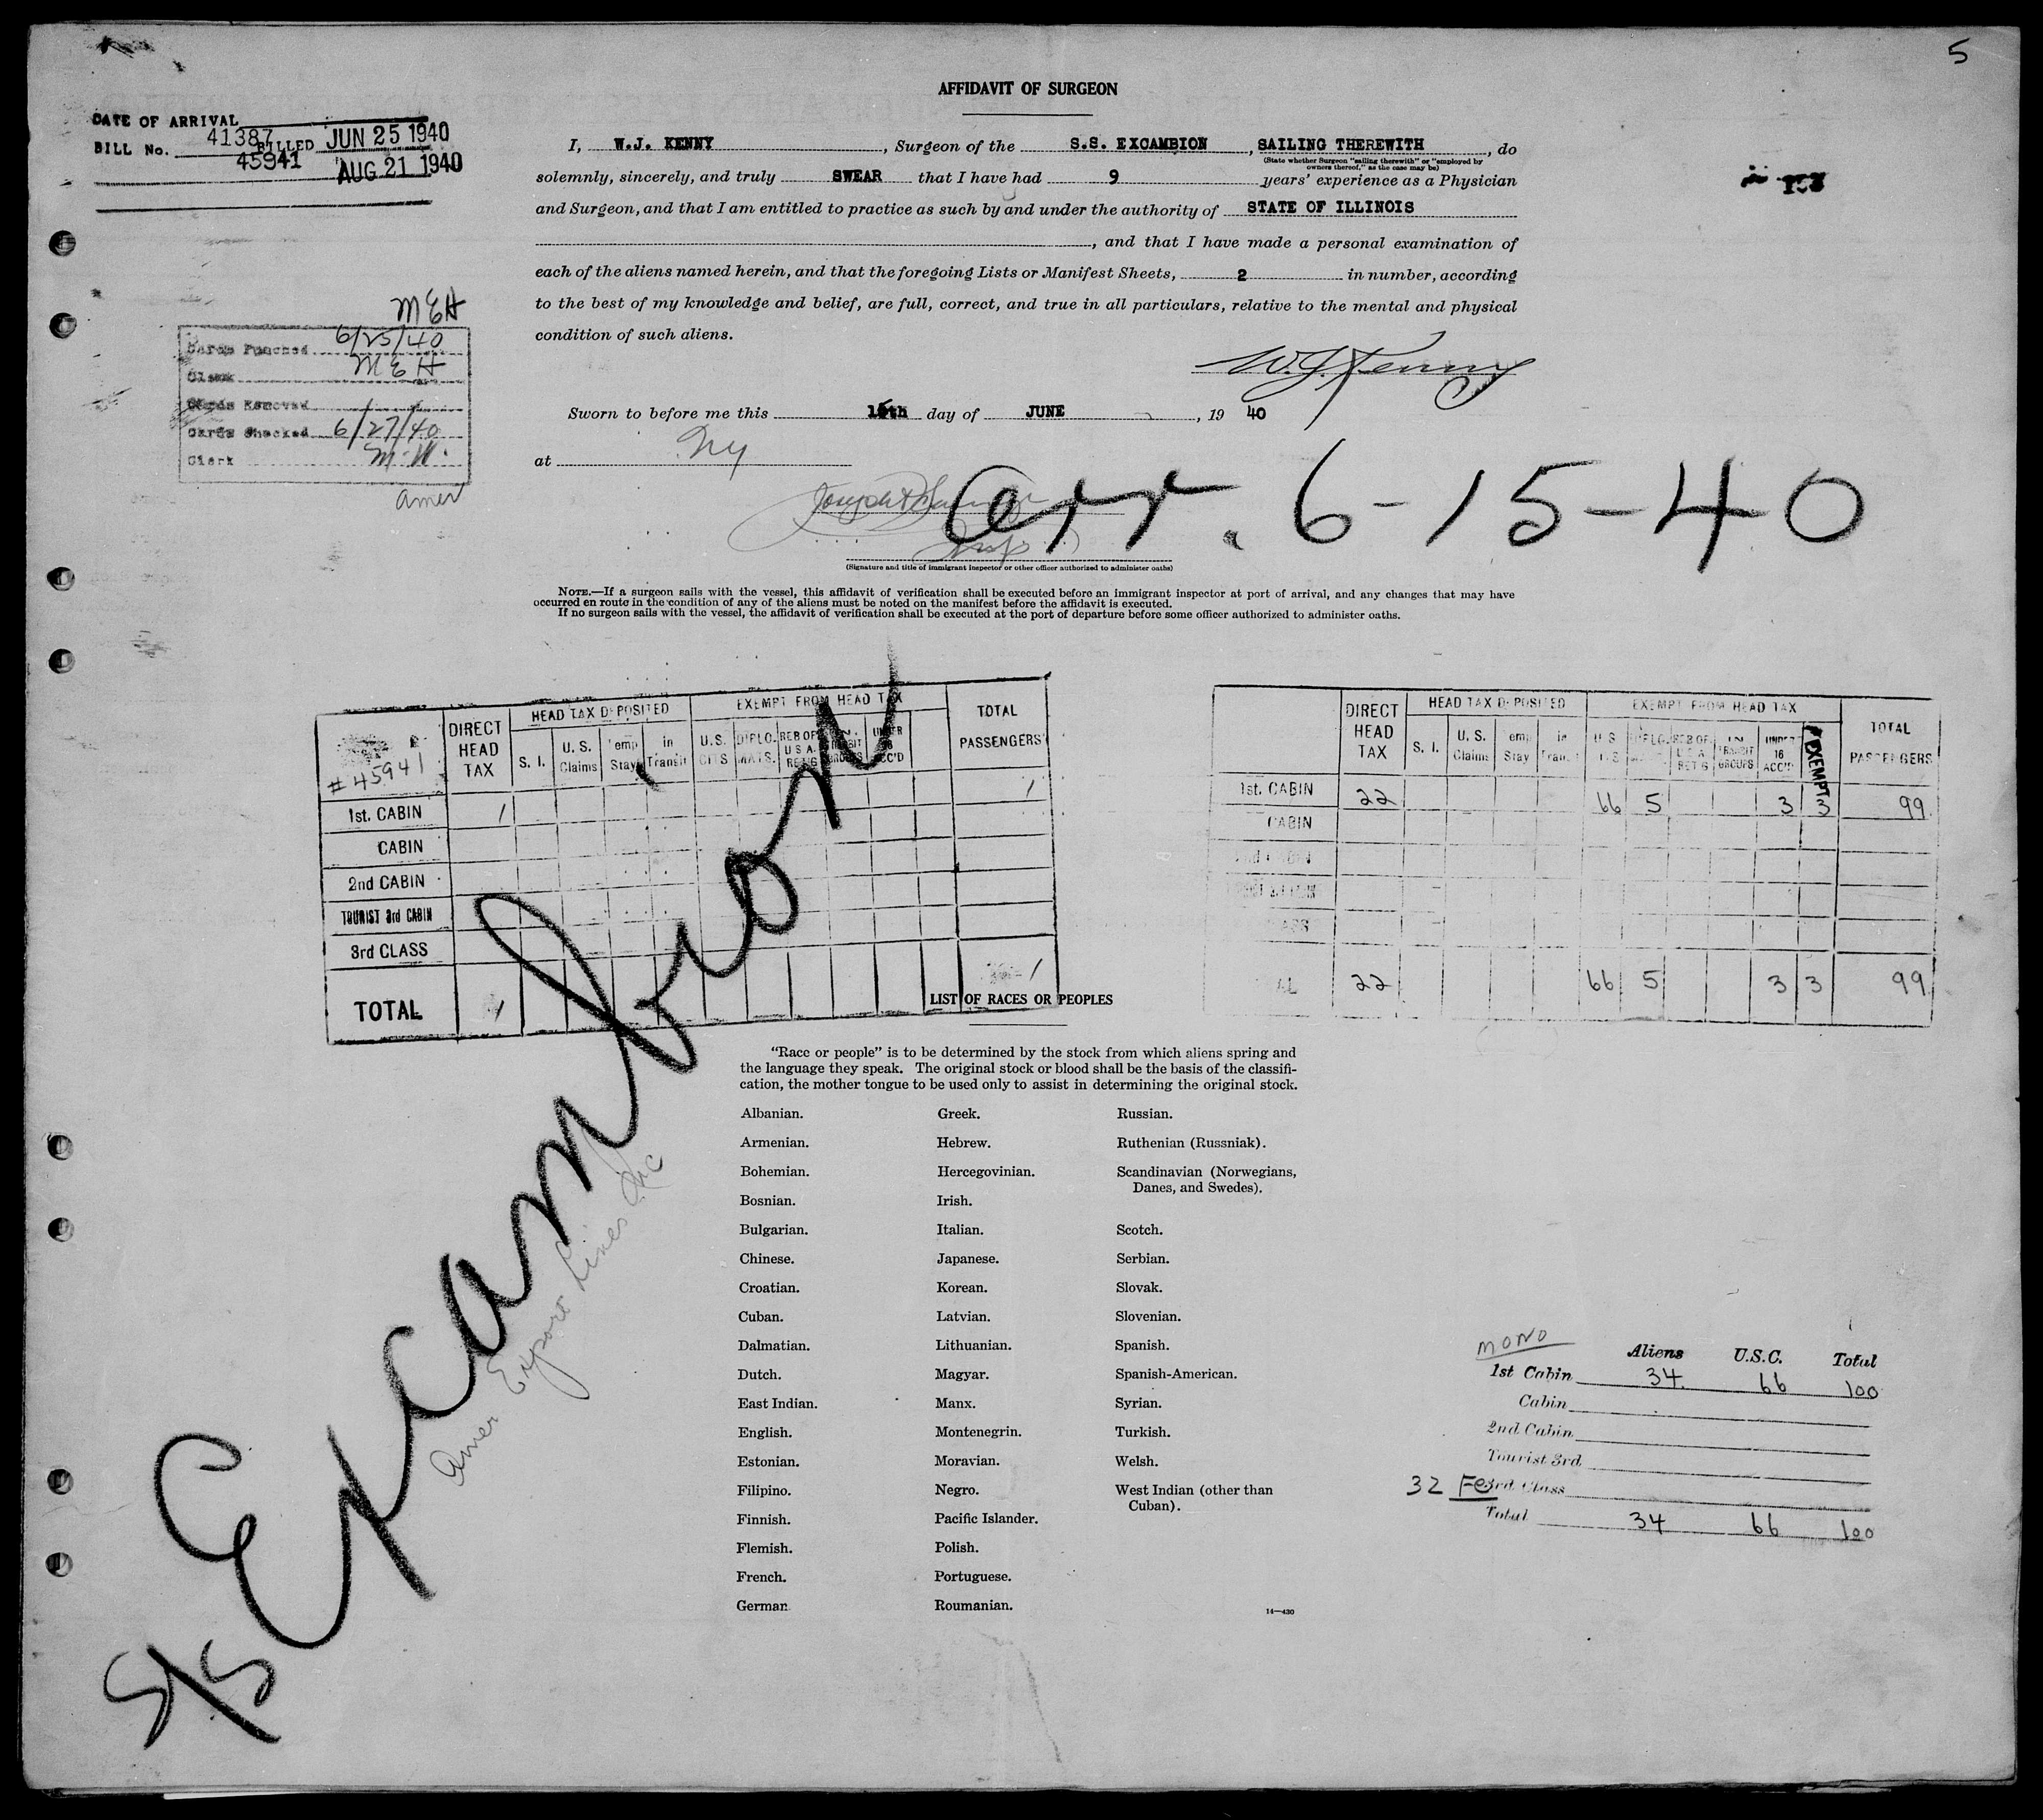 5
AFFIDAVIT OF SURGEON
DATE OF ARRIVAL
BILL No. 41387 BILLED JUN 25 1940
45941 AUG 21 1940
I, W.J. KENNY, Surgeon of the S.S. EXCAMBION, SAILING THEREWITH, do
(State whether Surgeon "sailing therewith" or "employed by
owners thereof," as the case may be)
solemnly, sincerely, and truly SWEAR that I have had 9 years' experience as a Physician
and Surgeon, and that I am entitled to practice as such by and under the authority of STATE OF ILLINOIS
, and that I have made a personal examination of
each of the aliens named herein, and that the foregoing Lists or Manifest Sheets, 2 in number, according
to the best of my knowledge and belief, are full, correct, and true in all particulars, relative to the mental and physical
condition of such aliens.
W.J. Kenny
MEH
Cards Punched 6/25/40
Clerk MEH
Cards Removed
Cards Checked 6/27/40
Clerk M.W.
amer
Sworn to before me this 15th day of JUNE, 19 40
at NY
arr. 6-15-40
(Signature and title of immigrant inspector or other officer authorized to administer oaths)
NOTE.—If a surgeon sails with the vessel, this affidavit of verification shall be executed before an immigrant inspector at port of arrival, and any changes that may have
occurred en route in the condition of any of the aliens must be noted on the manifest before the affidavit is executed.
If no surgeon sails with the vessel, the affidavit of verification shall be executed at the port of departure before some officer authorized to administer oaths.
# 45941
DIRECT HEAD TAX
HEAD TAX DEPOSITED
S. I. U. S. Claims Temp Stay in Transit
EXEMPT FROM HEAD TAX
U.S. CITS DIPLO. MATS. REB OF U S A. RET'G IN TRANSIT GROUPS UNDER 16 ACC'D
TOTAL PASSENGERS
1st. CABIN 1 1
CABIN
2nd CABIN
TOURIST 3rd CABIN
3rd CLASS
TOTAL 1 1
DIRECT HEAD TAX
HEAD TAX DEPOSITED
S. I. U. S. Claims Temp Stay in Trans.
EXEMPT FROM HEAD TAX
U S CITS DIPLO. REB OF U S A RET'G IN TRANSIT GROUPS UNDER 16 ACC'D EXEMPT
TOTAL PASSENGERS
1st. CABIN 22 66 5 3 3 99
CABIN
22 66 5 3 3 99
S/S Excambion
Amer Export Lines Inc
LIST OF RACES OR PEOPLES
"Race or people" is to be determined by the stock from which aliens spring and
the language they speak. The original stock or blood shall be the basis of the classifi-
cation, the mother tongue to be used only to assist in determining the original stock.
Albanian.
Armenian.
Bohemian.
Bosnian.
Bulgarian.
Chinese.
Croatian.
Cuban.
Dalmatian.
Dutch.
East Indian.
English.
Estonian.
Filipino.
Finnish.
Flemish.
French.
German
Greek.
Hebrew.
Hercegovinian.
Irish.
Italian.
Japanese.
Korean.
Latvian.
Lithuanian.
Magyar.
Manx.
Montenegrin.
Moravian.
Negro.
Pacific Islander.
Polish.
Portuguese.
Roumanian.
Russian.
Ruthenian (Russniak).
Scandinavian (Norwegians,
Danes, and Swedes).
Scotch.
Serbian.
Slovak.
Slovenian.
Spanish.
Spanish-American.
Syrian.
Turkish.
Welsh.
West Indian (other than
Cuban).
14—430
MONO
Aliens U.S.C. Total
1st Cabin 34 66 100
Cabin
2nd Cabin
Tourist 3rd
32 Fe 3rd Class
Total 34 66 100